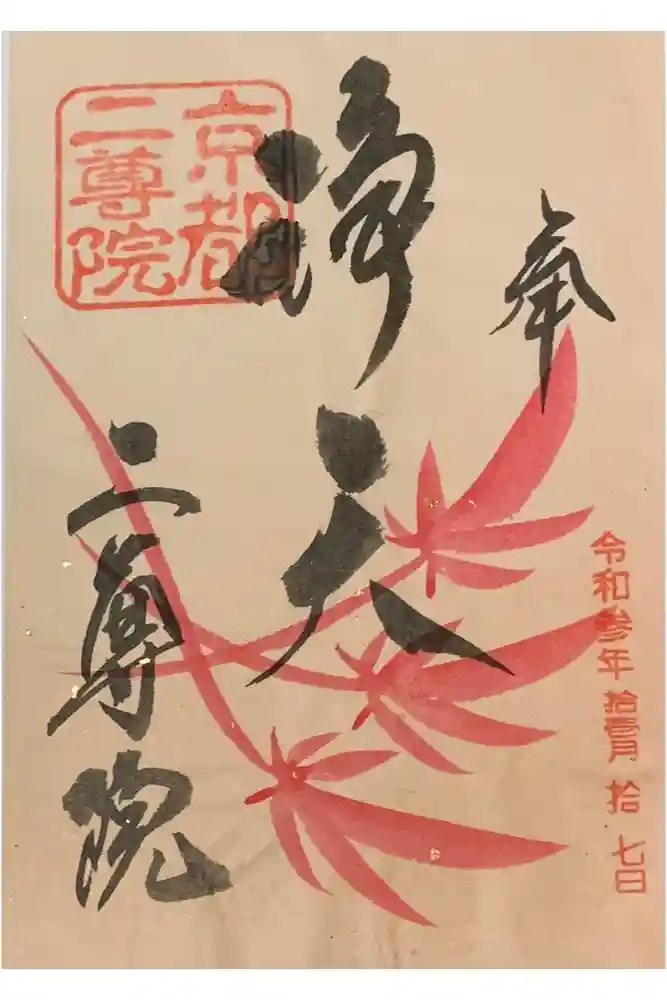 奉
令和参年拾壹月拾七日
浄天
京都
二尊院
二尊院